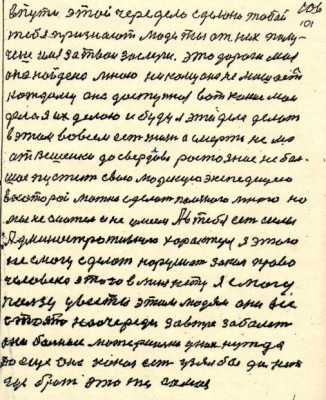 606
101
в пути этой чередело сделано тобой
тебя признают люди ты от них полу-
чене имя за твои заслуги. это дорога моя
она найдено мною никому она не мешает
каждому она доступная вот какие мои
дела я их делаю и буду я эти дела делат
в этом во всем ест жизн а смерти не мо
от Вешенки до свердова ростояние не бол
шое пустит свою людскую экспедицию
в которой можно сделат полезного много но
мы не смотели и не имеем А в тебя ест силы
Административного характера я этого
не смогу сделат нарушат закон право
человека этого в мня нету я смогу
ползу увести этим людям они все
стоят на очереди завтра заболет
они болные материално у них нужда
вобще она какая ест узял бы да нет
где брат это та самая